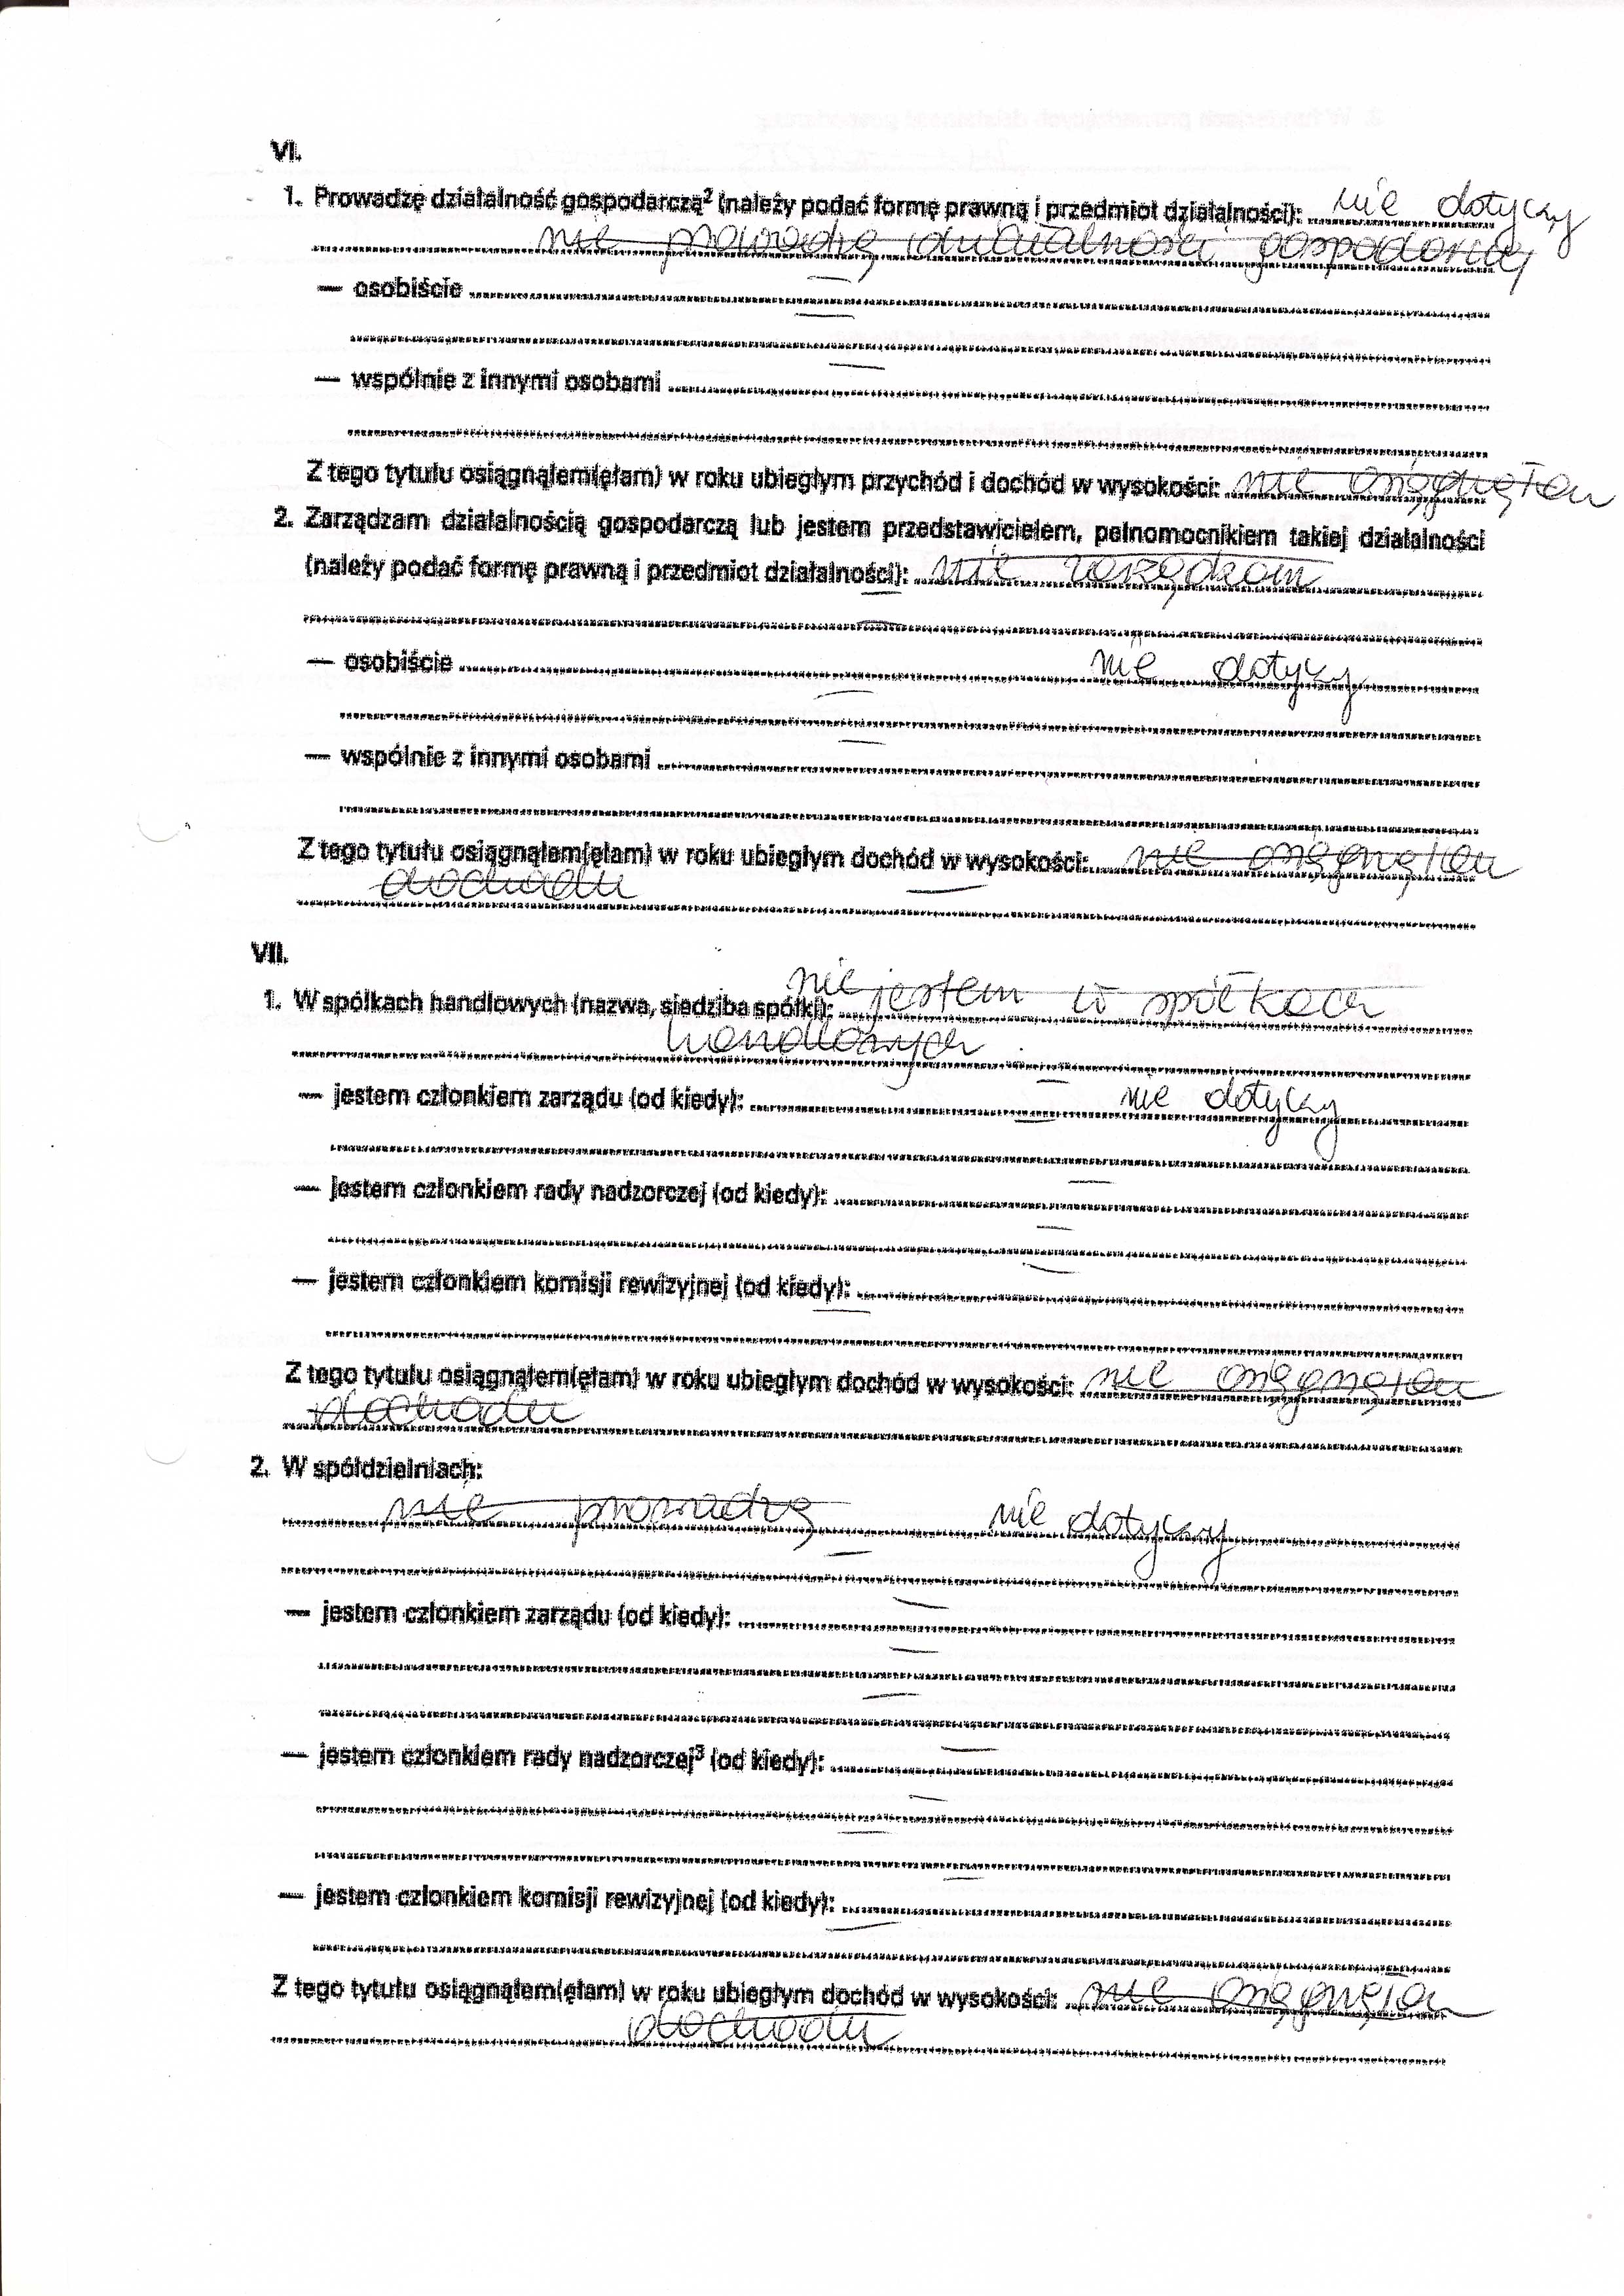 VI.
1. Prowadzę działalność gospodarczą² (należy podać formę prawną i przedmiot działalności): nie dotyczy
nie prowadzę działalności gospodarczej
— osobiście
— wspólnie z innymi osobami
Z tego tytułu osiągnąłem(ęłam) w roku ubiegłym przychód i dochód w wysokości: nie osiągnęłam
2. Zarządzam działalnością gospodarczą lub jestem przedstawicielem, pełnomocnikiem takiej działalności
(należy podać formę prawną i przedmiot działalności): nie zarządzam
— osobiście nie dotyczy
— wspólnie z innymi osobami
Z tego tytułu osiągnąłem(ęłam) w roku ubiegłym dochód w wysokości: nie osiągnęłam
dochodu
VII.
1. W spółkach handlowych (nazwa, siedziba spółki): nie jestem w spółkach
handlowych
— jestem członkiem zarządu (od kiedy): nie dotyczy
— jestem członkiem rady nadzorczej (od kiedy):
— jestem członkiem komisji rewizyjnej (od kiedy):
Z tego tytułu osiągnąłem(ęłam) w roku ubiegłym dochód w wysokości: nie osiągnęłam
dochodu
2. W spółdzielniach:
nie prowadzę nie dotyczy
— jestem członkiem zarządu (od kiedy):
— jestem członkiem rady nadzorczej³ (od kiedy):
— jestem członkiem komisji rewizyjnej (od kiedy):
Z tego tytułu osiągnąłem(ęłam) w roku ubiegłym dochód w wysokości: nie osiągnęłam
dochodu